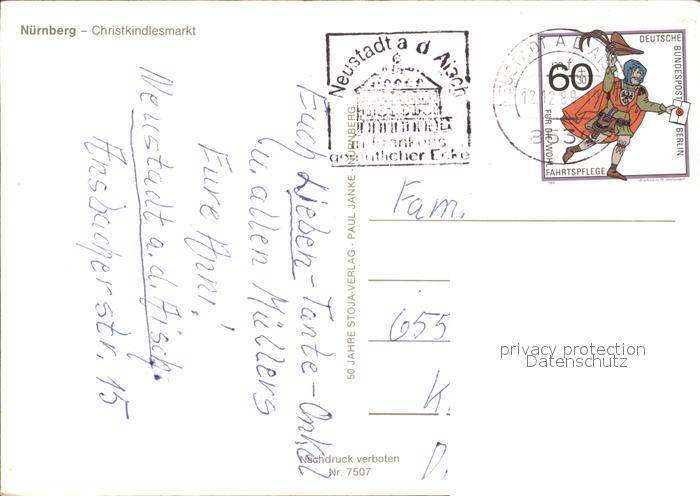 Nürnberg – Christkindlesmarkt
Euch Lieben - Tante - Onkel
u. allen Müllers
Eure Anni.
Neustadt a. d. Aisch
Ansbacherstr. 15
50 JAHRE STOJA-VERLAG - PAUL JANKE - NÜRNBERG
Nachdruck verboten
Nr. 7507
Neustadt a d Aisch
in Frankens
gemütlicher Ecke
NEUSTADT A D A
12.12.89
60
DEUTSCHE
BUNDESPOST
BERLIN
FÜR DIE WOHL
FAHRTSPFLEGE
Fam.
655
K.
D.
privacy protection
Datenschutz